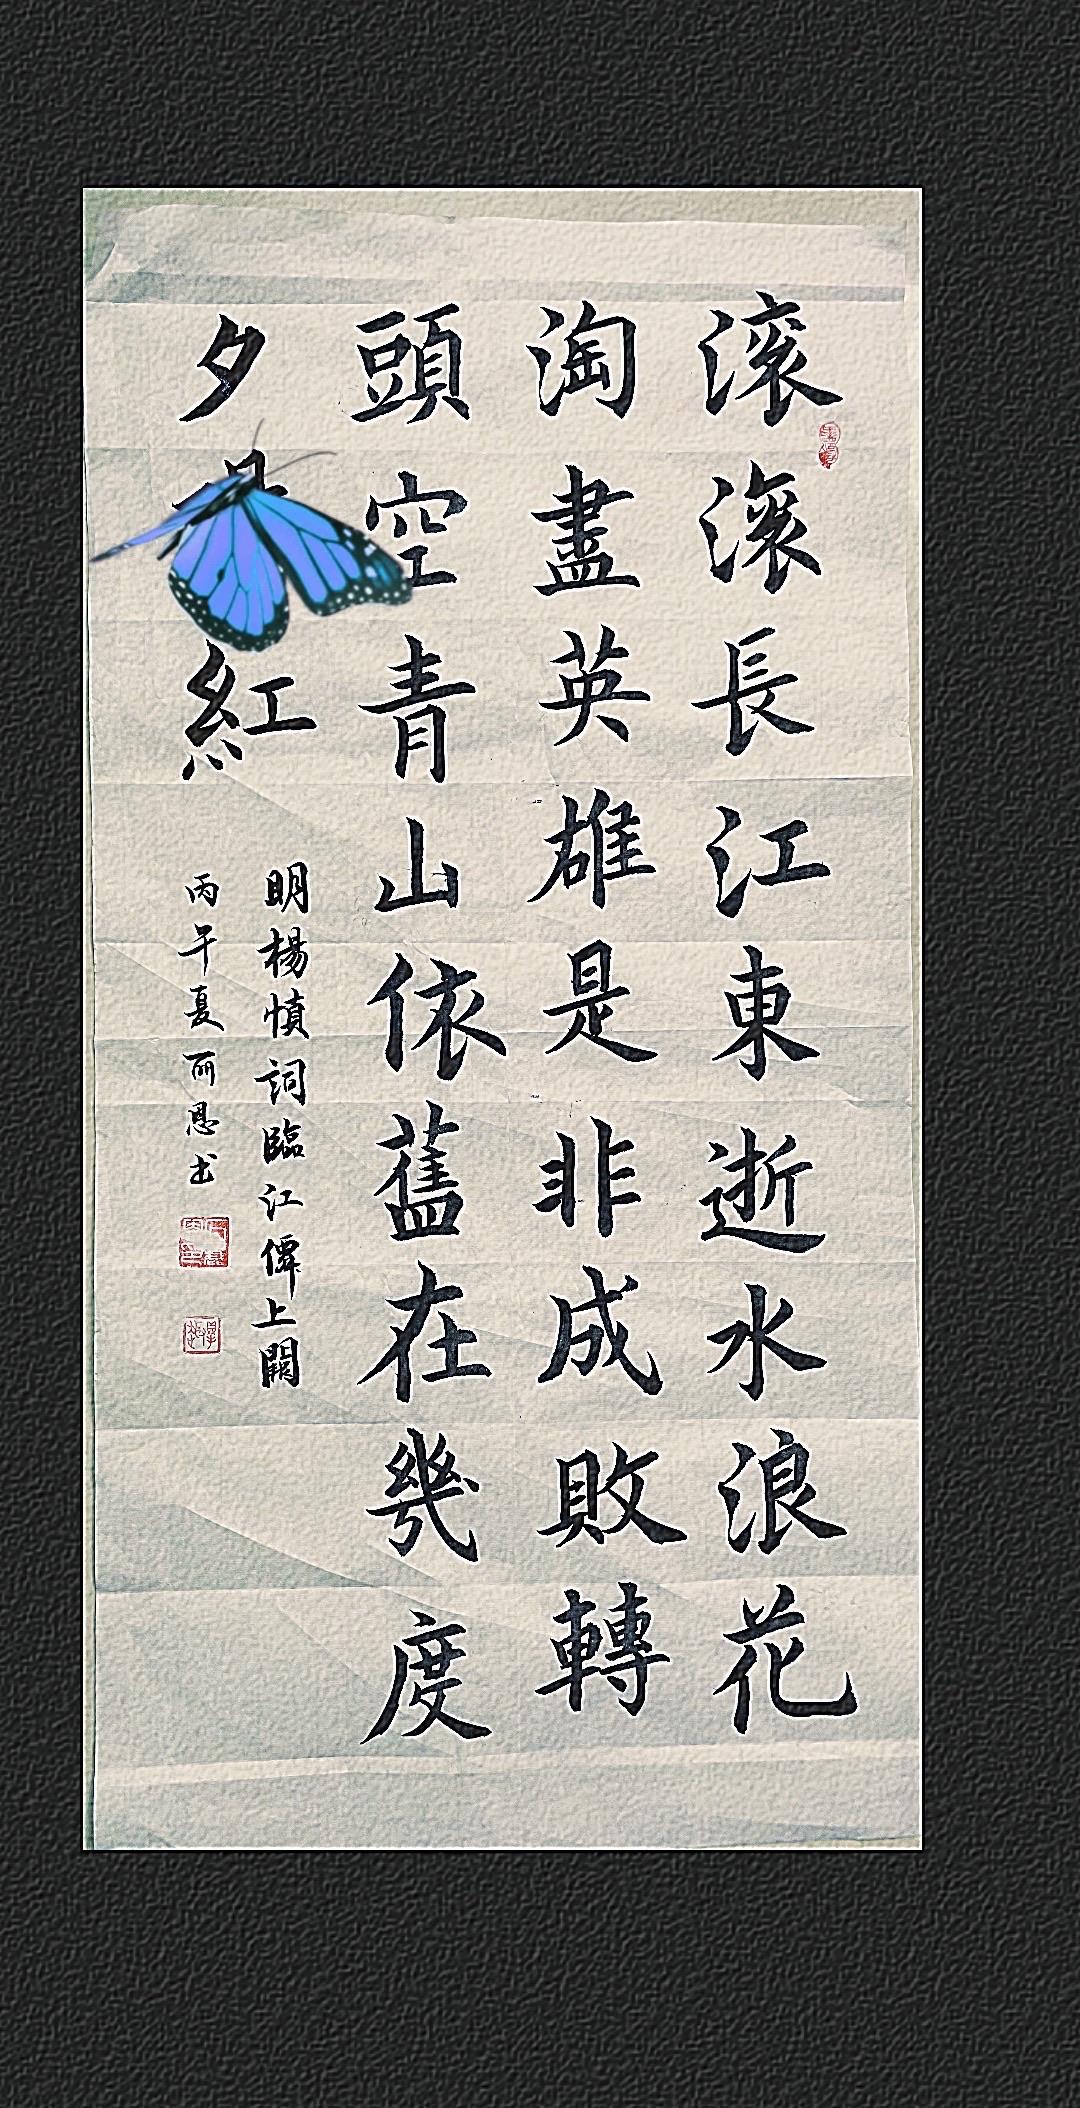 滚滚長江東逝水浪花
淘盡英雄是非成敗轉
頭空青山依舊在幾度
夕紅
明楊慎詞臨江僊上闋
丙午夏丽恩书